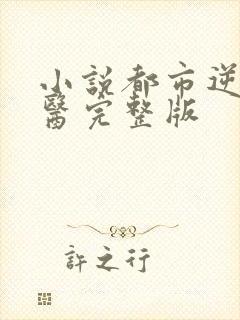 小説都市逆
醫完整版
許之行